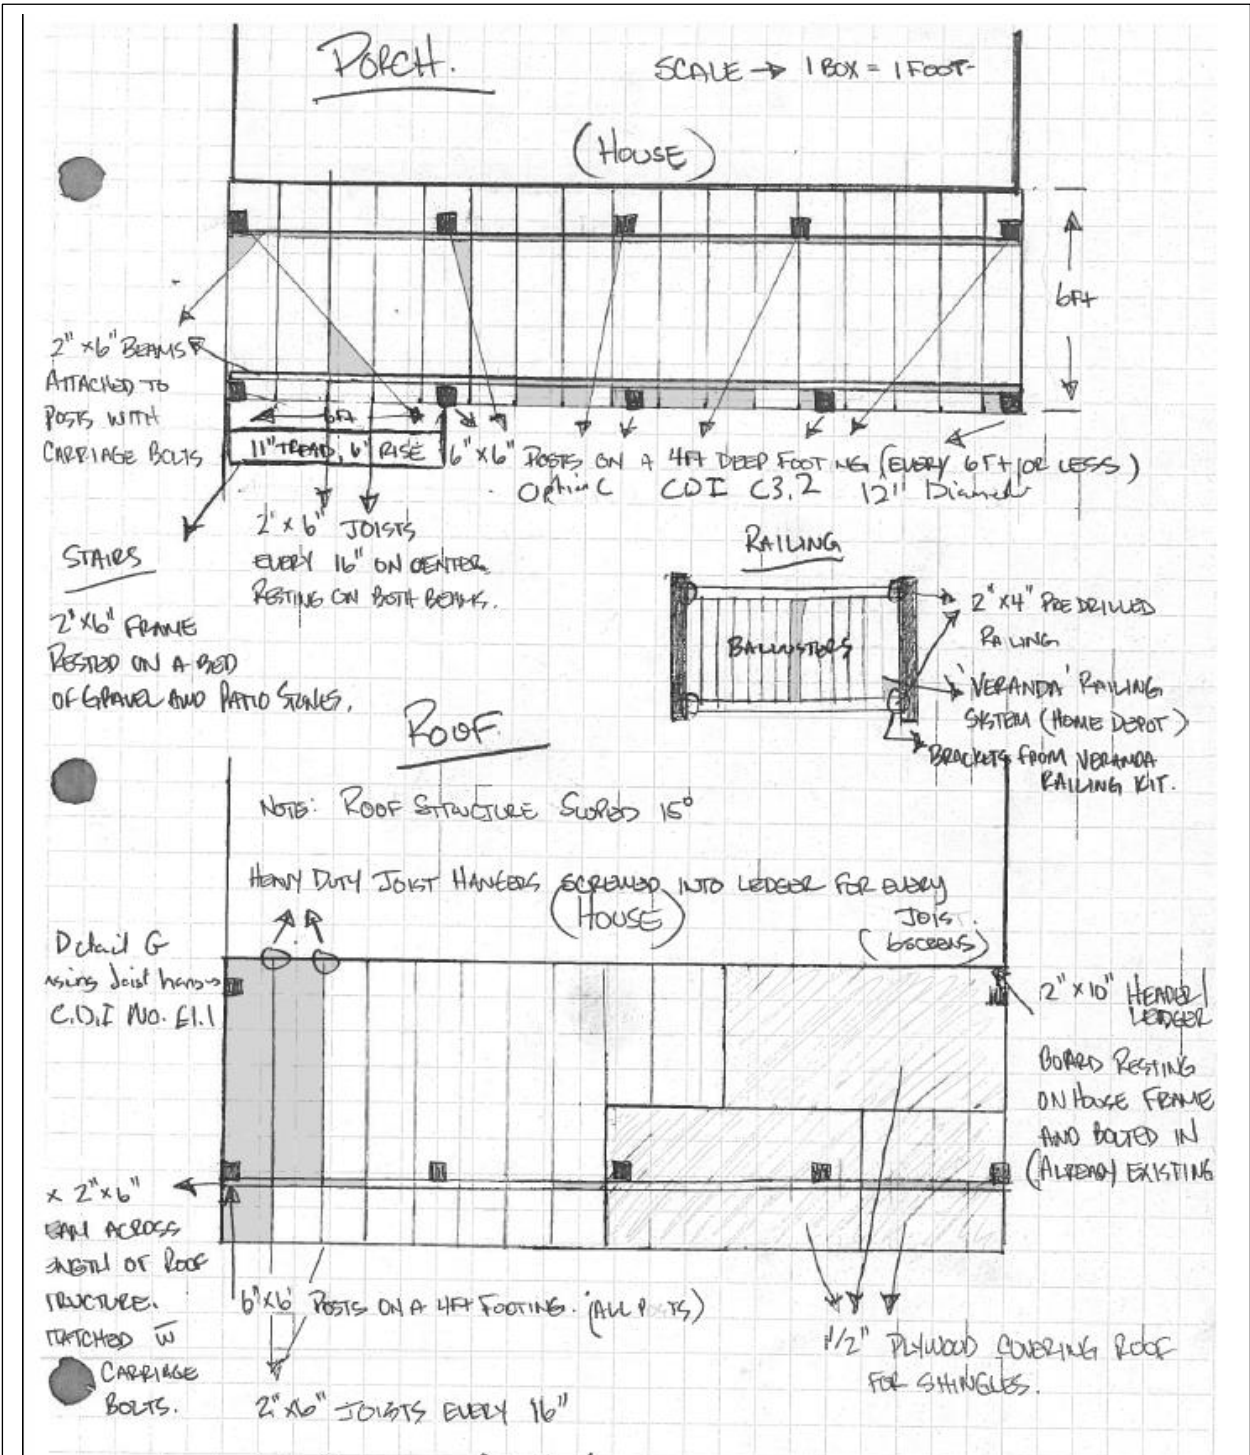 PORCH.
SCALE → 1 BOX = 1 FOOT
(HOUSE)
6FT
2"x6" BEAMS
ATTACHED TO
POSTS WITH
CARRIAGE BOLTS
6FT
11" TREAD, 6" RISE
6"x6" POSTS ON A 4FT DEEP FOOTING (EVERY 6FT OR LESS)
Option C CDI C3.2 12" Diameter
2"x6" JOISTS
EVERY 16" ON CENTER
RESTING ON BOTH BEAMS.
STAIRS
2"x6" FRAME
RESTED ON A BED
OF GRAVEL AND PATIO STONES.
RAILING
BALLUSTERS
2"x4" PREDRILLED
RAILING
'VERANDA' RAILING
SYSTEM (HOME DEPOT)
BRACKETS FROM VERANDA
RAILING KIT.
ROOF
NOTE: ROOF STRUCTURE SLOPED 15°
HEAVY DUTY JOIST HANGERS SCREWED INTO LEDGER FOR EVERY
JOIST.
(6 SCREWS)
(HOUSE)
Detail G
using Joist hangers
C.D.I NO. E1.1
2"x10" HEADER/
LEDGER
BOARD RESTING
ON HOUSE FRAME
AND BOLTED IN
(ALREADY EXISTING
x 2"x6"
EAM ACROSS
ENGTH OF ROOF
TRUCTURE.
TTATCHED W
CARRIAGE
BOLTS.
6"x6' POSTS ON A 4FT FOOTING. (ALL POSTS)
2"x6" JOISTS EVERY 16"
1/2" PLYWOOD COVERING ROOF
FOR SHINGLES.